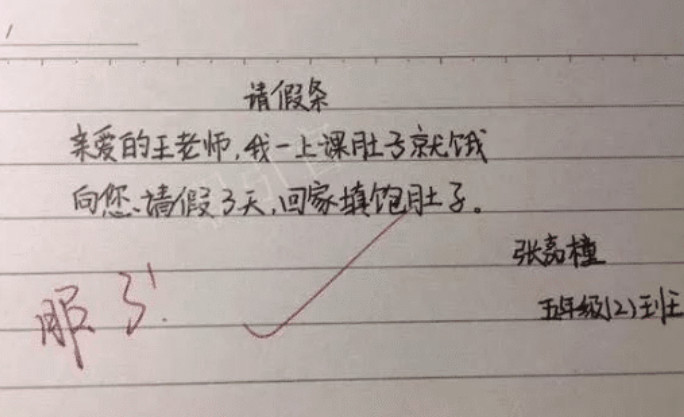 请假条
亲爱的王老师,我一上课肚子就饿
向您请假3天,回家填饱肚子。
张高橦
五年级(2)班
服了!